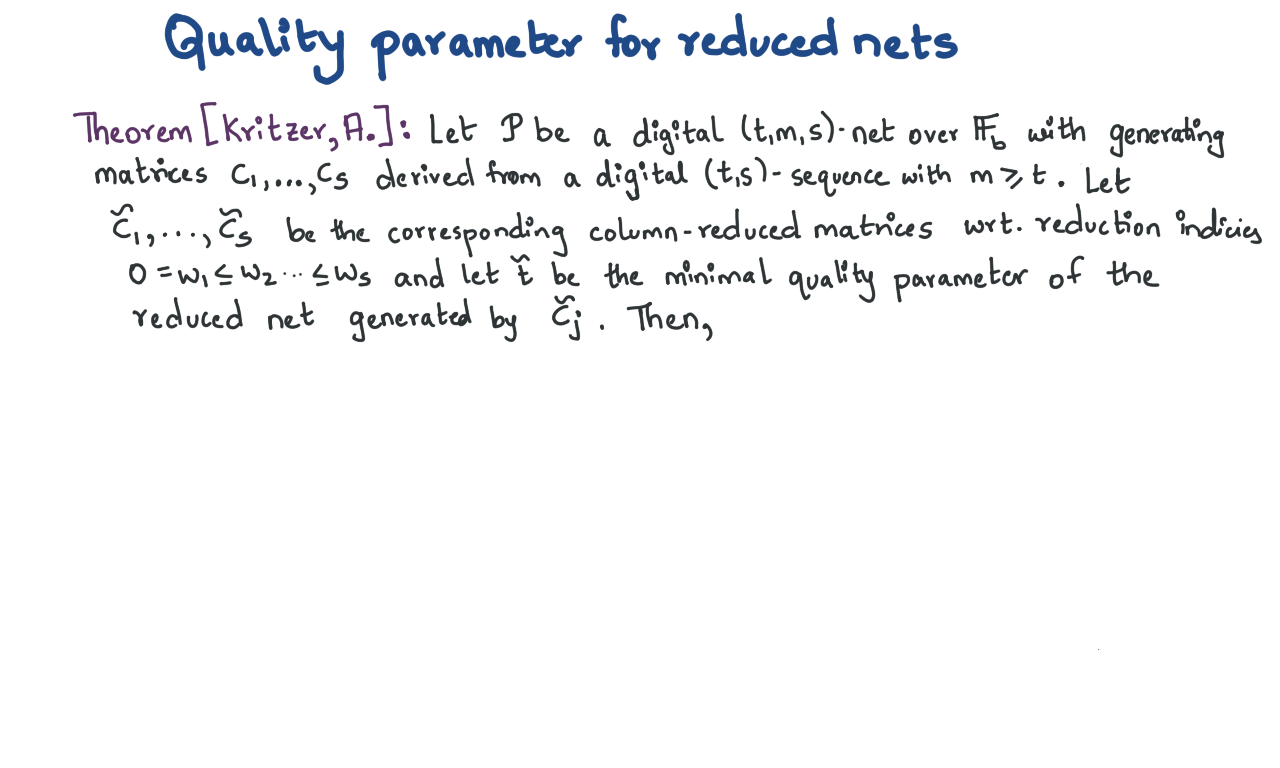 Quality parameter for reduced nets
Theorem [Kritzer, A.]: Let P be a digital (t,m,s)-net over 𝔽_b with generating
matrices C₁,...,Cₛ derived from a digital (t,s)-sequence with m ⩾ t. Let
C̆₁,...,C̆ₛ be the corresponding column-reduced matrices wrt. reduction indicies
0 = w₁ ≤ w₂ ... ≤ wₛ and let t̆ be the minimal quality parameter of the
reduced net generated by C̆ⱼ. Then,